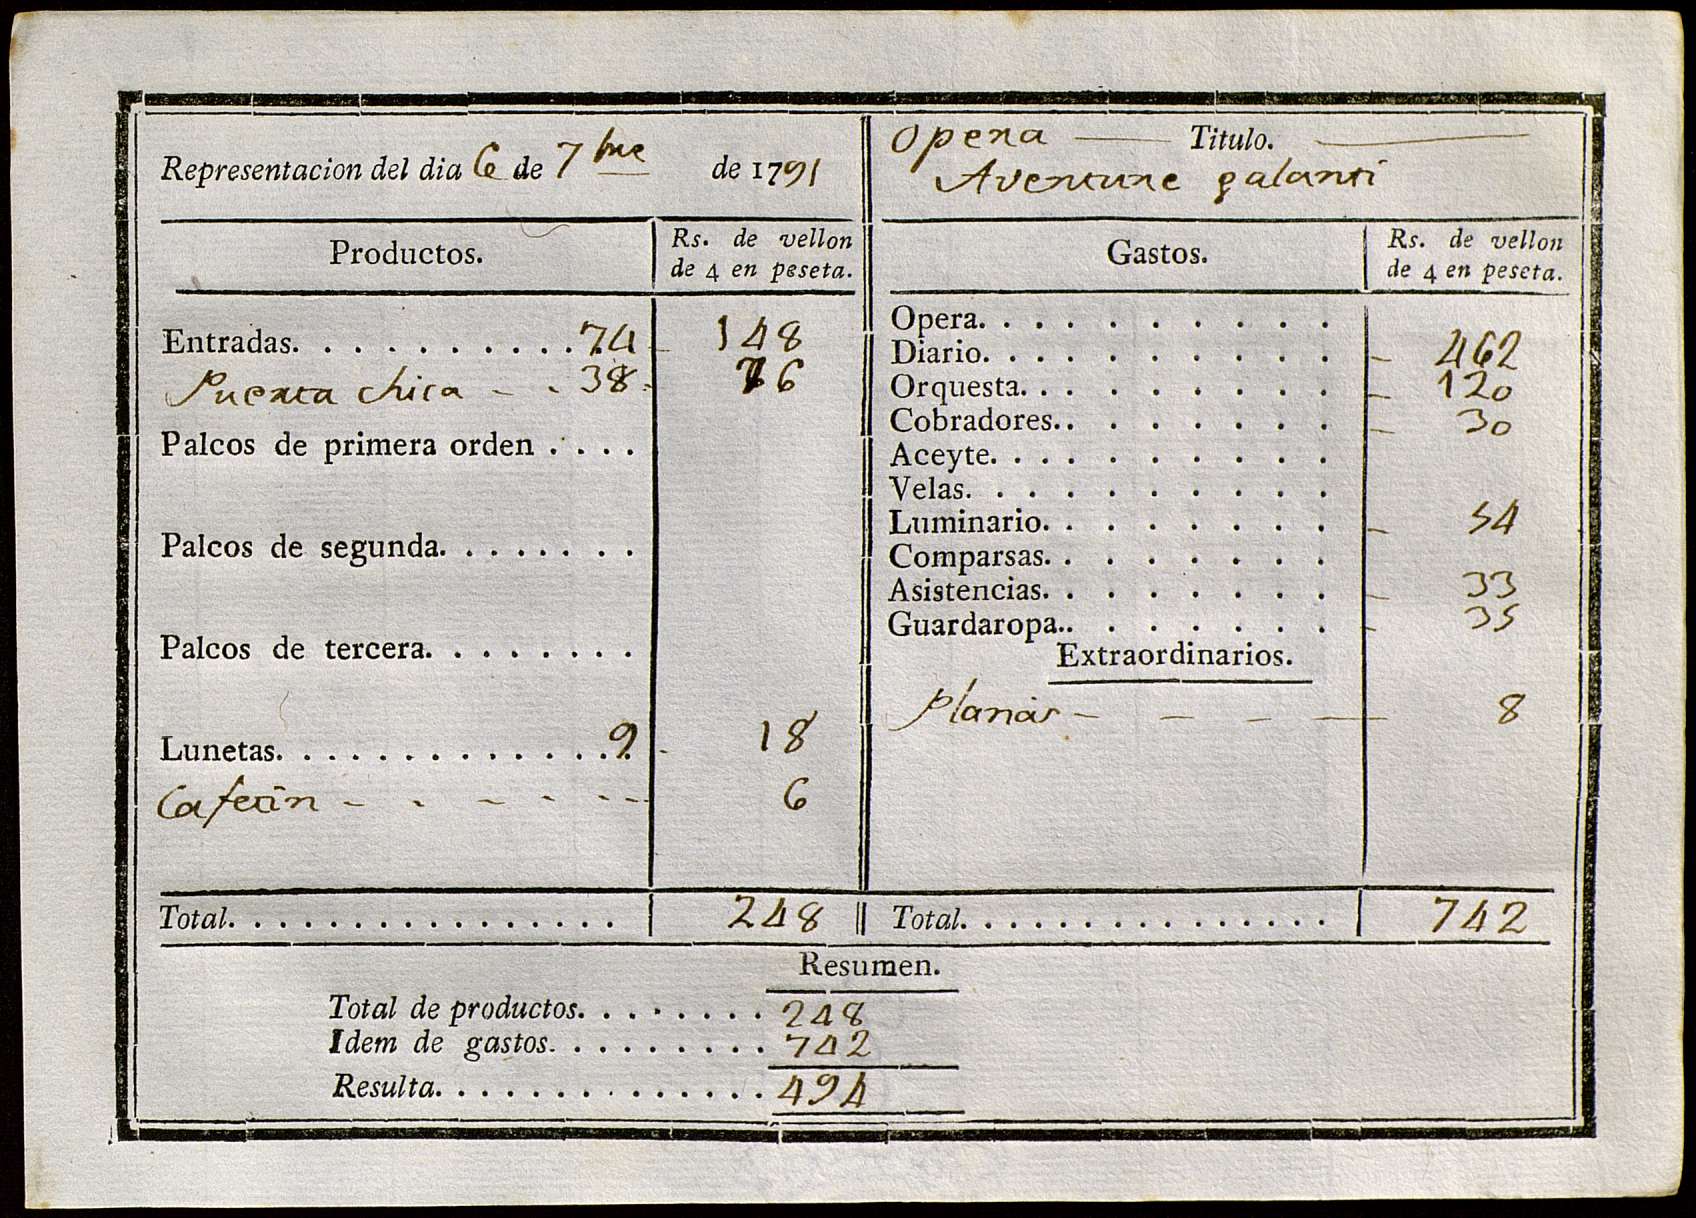 Representacion del dia 6 de 7bre de 1791
Opera Titulo.
Aventure galanti
Productos.
Rs. de vellon
de 4 en peseta.
Entradas. 74 148
Puerta chica 38 76
Palcos de primera orden
Palcos de segunda.
Palcos de tercera.
Lunetas. 9 18
Cafetin 6
Total. 248
Gastos.
Rs. de vellon
de 4 en peseta.
Opera.
Diario. 462
Orquesta. 120
Cobradores. 30
Aceyte.
Velas.
Luminario. 54
Comparsas.
Asistencias. 33
Guardaropa. 35
Extraordinarios.
Planas 8
Total. 742
Resumen.
Total de productos. 248
Idem de gastos. 742
Resulta. 494